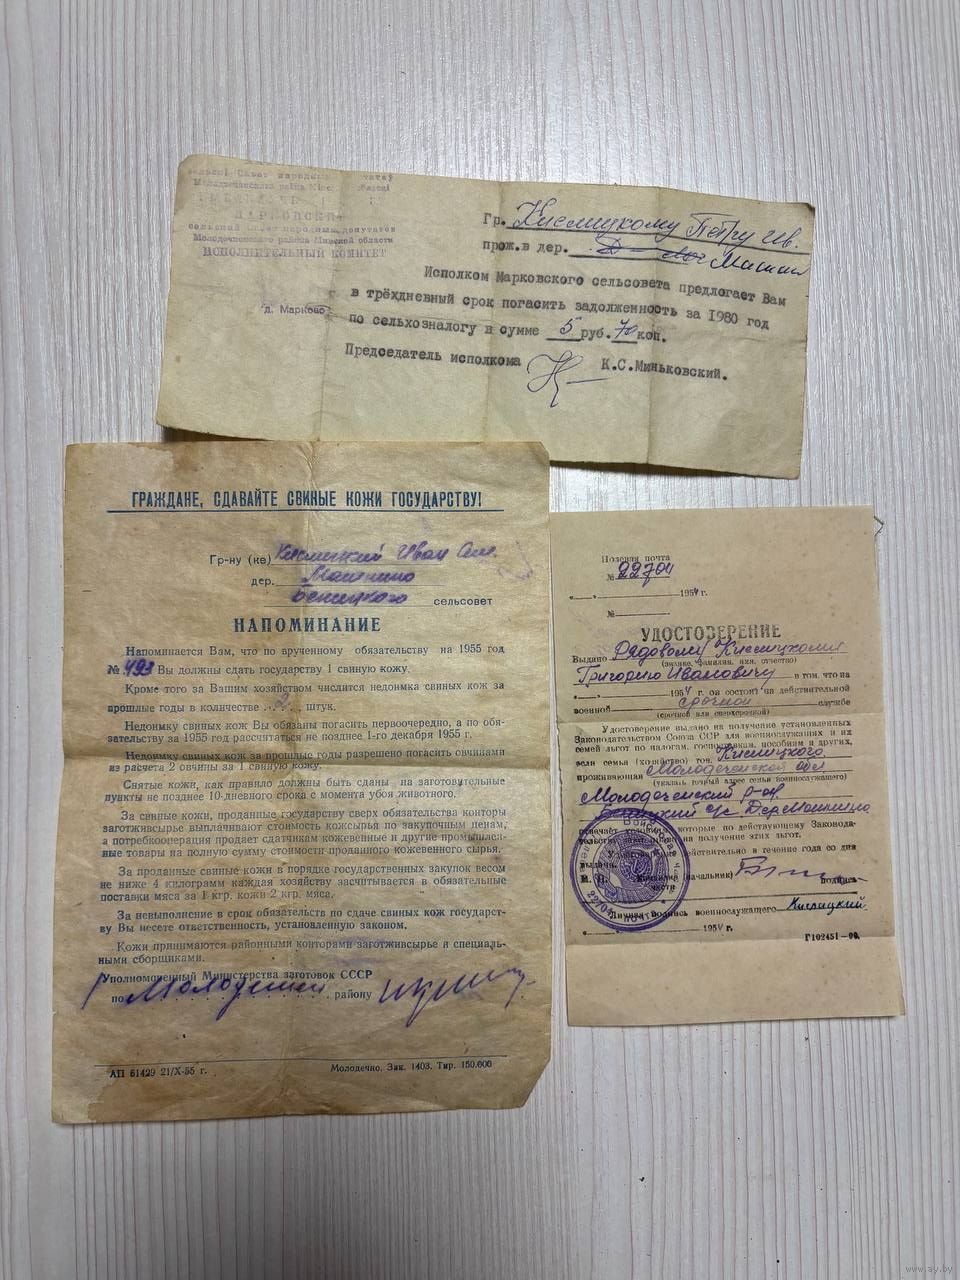 сельскі Савет народных
Молодечненского района Минской области
МАРКОВСКИЙ
сельский Совет народных депутатов
Молодечненского района Минской области
ИСПОЛНИТЕЛЬНЫЙ КОМИТЕТ
д. Марково
Гр. Кислицкому Петру Ив.
прож. в дер.
Исполком Марковского сельсовета предлогает Вам
в трёхдневный срок погасить задолженность за 1980 год
по сельхозналогу в сумме 5 руб. 70 коп.
Председатель исполкома К.С.Миньковский.
ГРАЖДАНЕ, СДАВАЙТЕ СВИНЫЕ КОЖИ ГОСУДАРСТВУ!
Гр-ну (ке) Кислицкий Иван
дер. Машнино
Беницкого сельсовет
НАПОМИНАНИЕ
Напоминается Вам, что по врученному обязательству на 1955 год
№ 493 Вы должны сдать государству 1 свиную кожу.
Кроме того за Вашим хозяйством числится недоимка свиных кож за
прошлые годы в количестве 2 штук.
Недоимку свиных кож Вы обязаны погасить первоочередно, а по обя-
зательству за 1955 год рассчитаться не позднее 1-го декабря 1955 г.
Недоимку свиных кож за прошлые годы разрешено погасить овчинами
из расчета 2 овчины за 1 свиную кожу.
Снятые кожи, как правило должны быть сданы на заготовительные
пункты не позднее 10-дневного срока с момента убоя животного.
За свиные кожи, проданные государству сверх обязательства конторы
заготживсырье выплачивают стоимость кожсырья по закупочным ценам,
а потребкооперация продает сдатчикам кожевенные и другие промышлен-
ные товары на полную сумму стоимости проданного кожевенного сырья.
За проданные свиные кожи в порядке государственных закупок весом
не ниже 4 килограмм каждая хозяйству засчитывается в обязательные
поставки мяса за 1 кгр. кожи 2 кгр. мяса.
За невыполнение в срок обязательств по сдаче свиных кож государст-
ву Вы несете ответственность, установленную законом.
Кожи принимаются районными конторами заготживсырье и специаль-
ными сборщиками.
Уполномоченный Министерства заготовок СССР
по району
АП 61429 21/X-55 г. Молодечно. Зак. 1403. Тир. 150.000
Полевая почта
№ 22704
1954 г.
№
УДОСТОВЕРЕНИЕ
Выдано Рядовому Кислицкому
(звание, фамилия, имя, отчество)
Григорию Ивановичу в том, что на
1954 г. он состоит на действительной
военной срочной службе
(срочной или сверхсрочной)
Удостоверение выдано на получение установленных
Законодательством Союза ССР для военнослужащих и их
семей льгот по налогам, госпоставкам, пособиям и других,
если семья (хозяйство) тов. Кислицкого
проживающая Молодеченской обл
(указать точный адрес семьи военнослужащего)
Молодеченский р-он
Беницкий с/с Дер Машнино
отвечает условиям, которые по действующему Законода-
тельству на получение этих льгот.
Удостоверение действительно в течение года со дня
выдачи.
М. П. начальник
части подпись
Личная подпись военнослужащего Кислицкий
195 г. Г102451—00.
www.ay.by